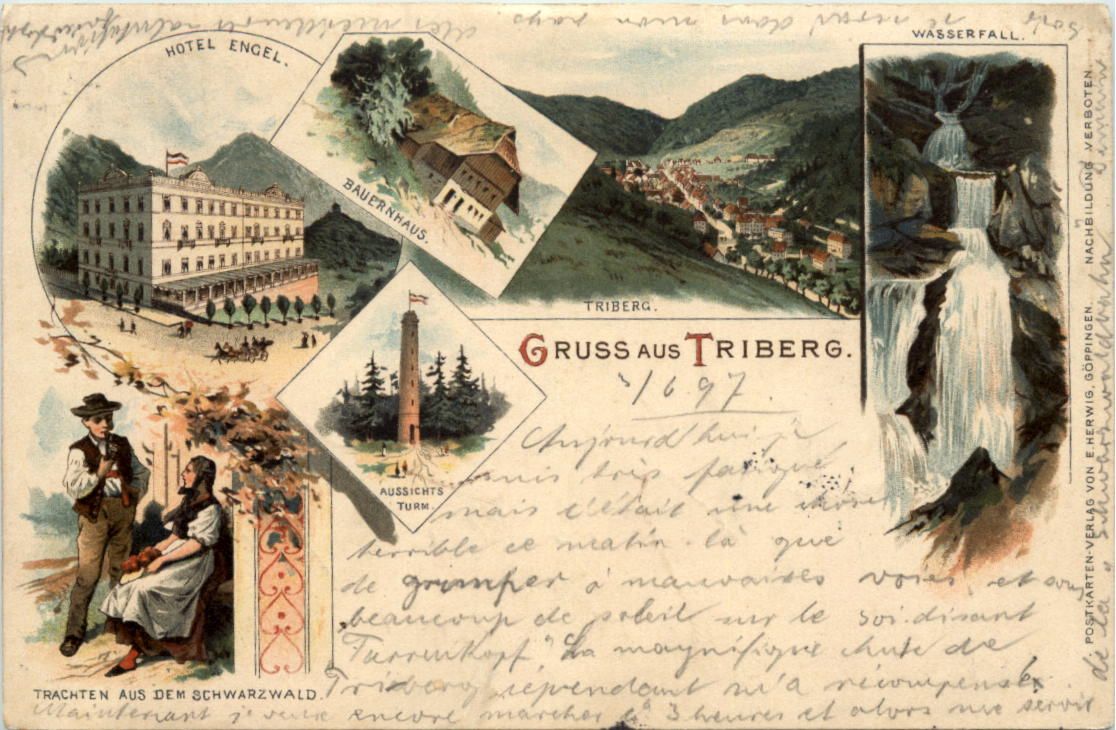 HOTEL ENGEL.
BAUERNHAUS.
WASSERFALL.
TRIBERG.
GRUSS AUS TRIBERG.
3/6 97.
AUSSICHTS
TURM.
TRACHTEN AUS DEM SCHWARZWALD.
POSTKARTEN-VERLAG VON E. HERWIG, GÖPPINGEN. NACHBILDUNG VERBOTEN.
Aujourd'hui je
suis très fatigué
mais c'était une chose
terrible ce matin-là que
de grimper à mauvaises voies et
beaucoup de soleil sur le soi-disant
"Farrenkopf". La magnifique chute de
Triberg cependant m'a récompensé.
Maintenant je veux encore marcher 3 heures et alors me servir
de la "Schwarzwaldbahn"
dans mon pays